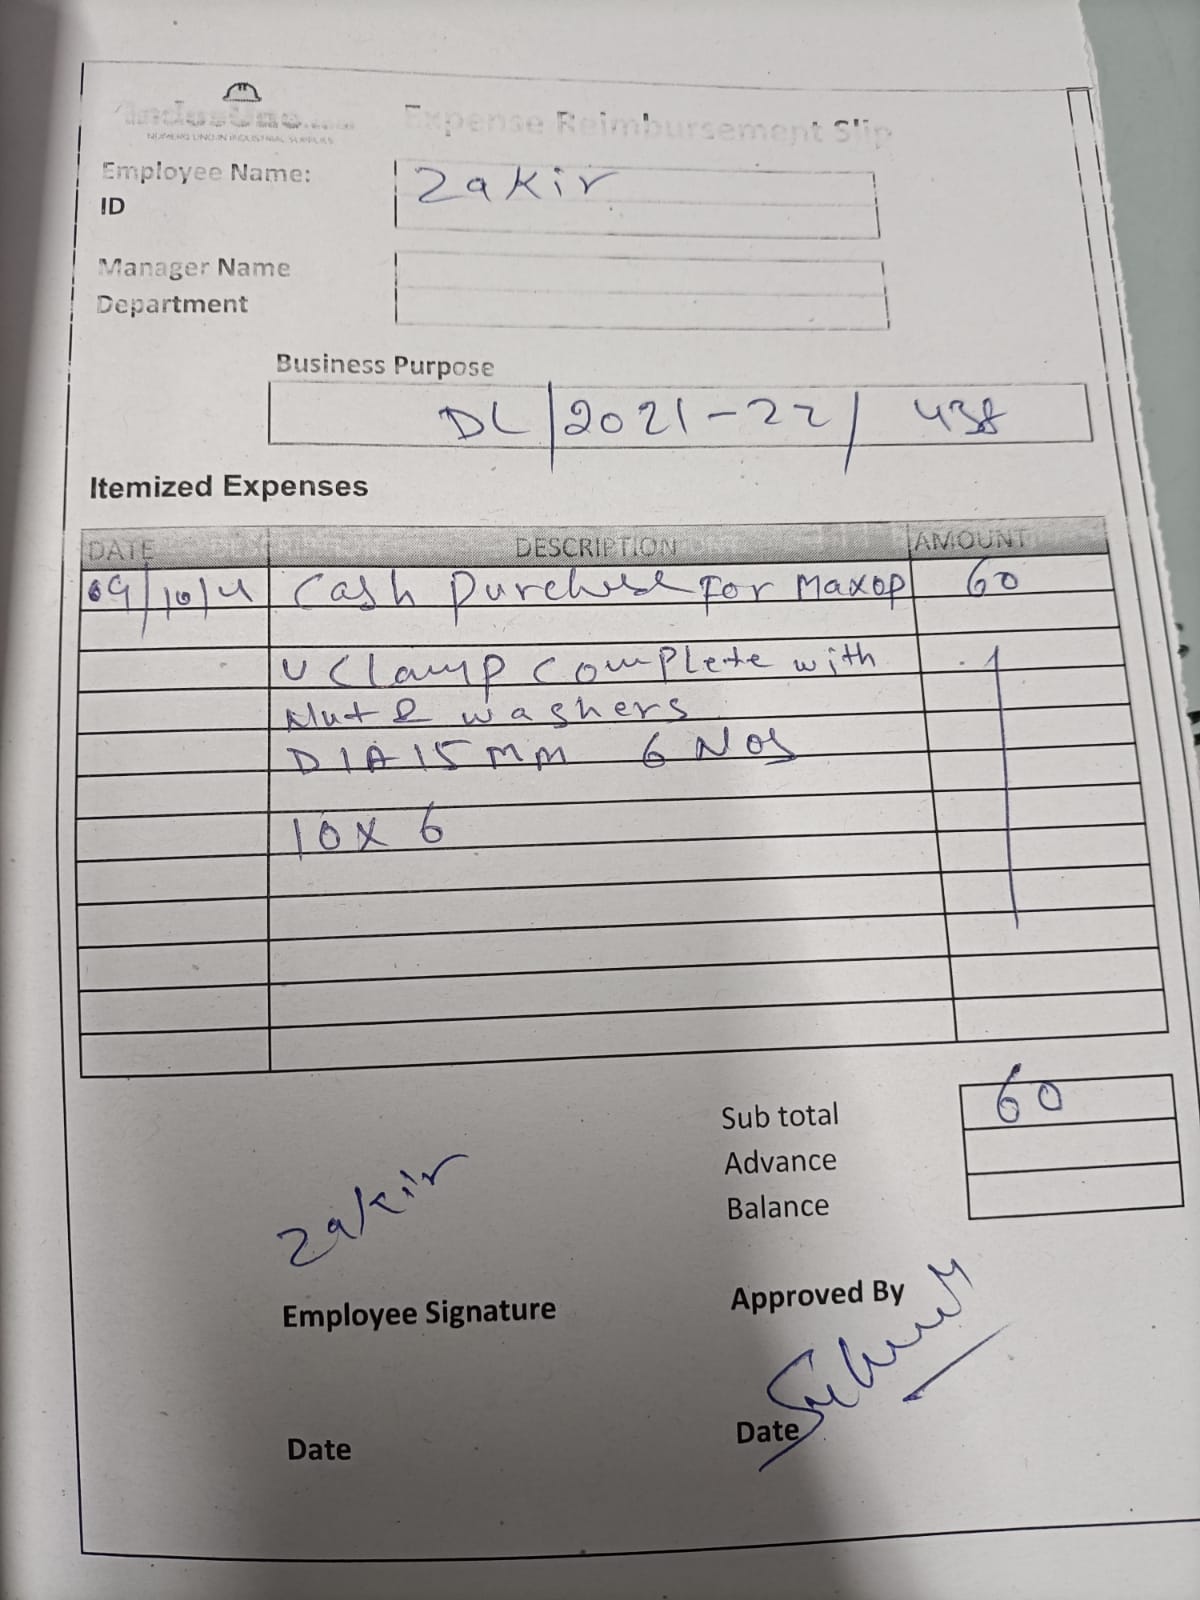 IndusUno.com Expense Reimbursement Slip
NUMERO UNO IN INDUSTRIAL SUPPLIES
Employee Name: Zakir
ID
Manager Name
Department
Business Purpose
DL/2021-22/438
Itemized Expenses
DATE DESCRIPTION AMOUNT
09/10/21 Cash Purchase For Maxop 60
U Clamp Complete with
Nut & washers
DIA 15 MM 6 Nos
10 x 6
Sub total 60
Advance
Balance
Zakir
Employee Signature Approved By
Date Date